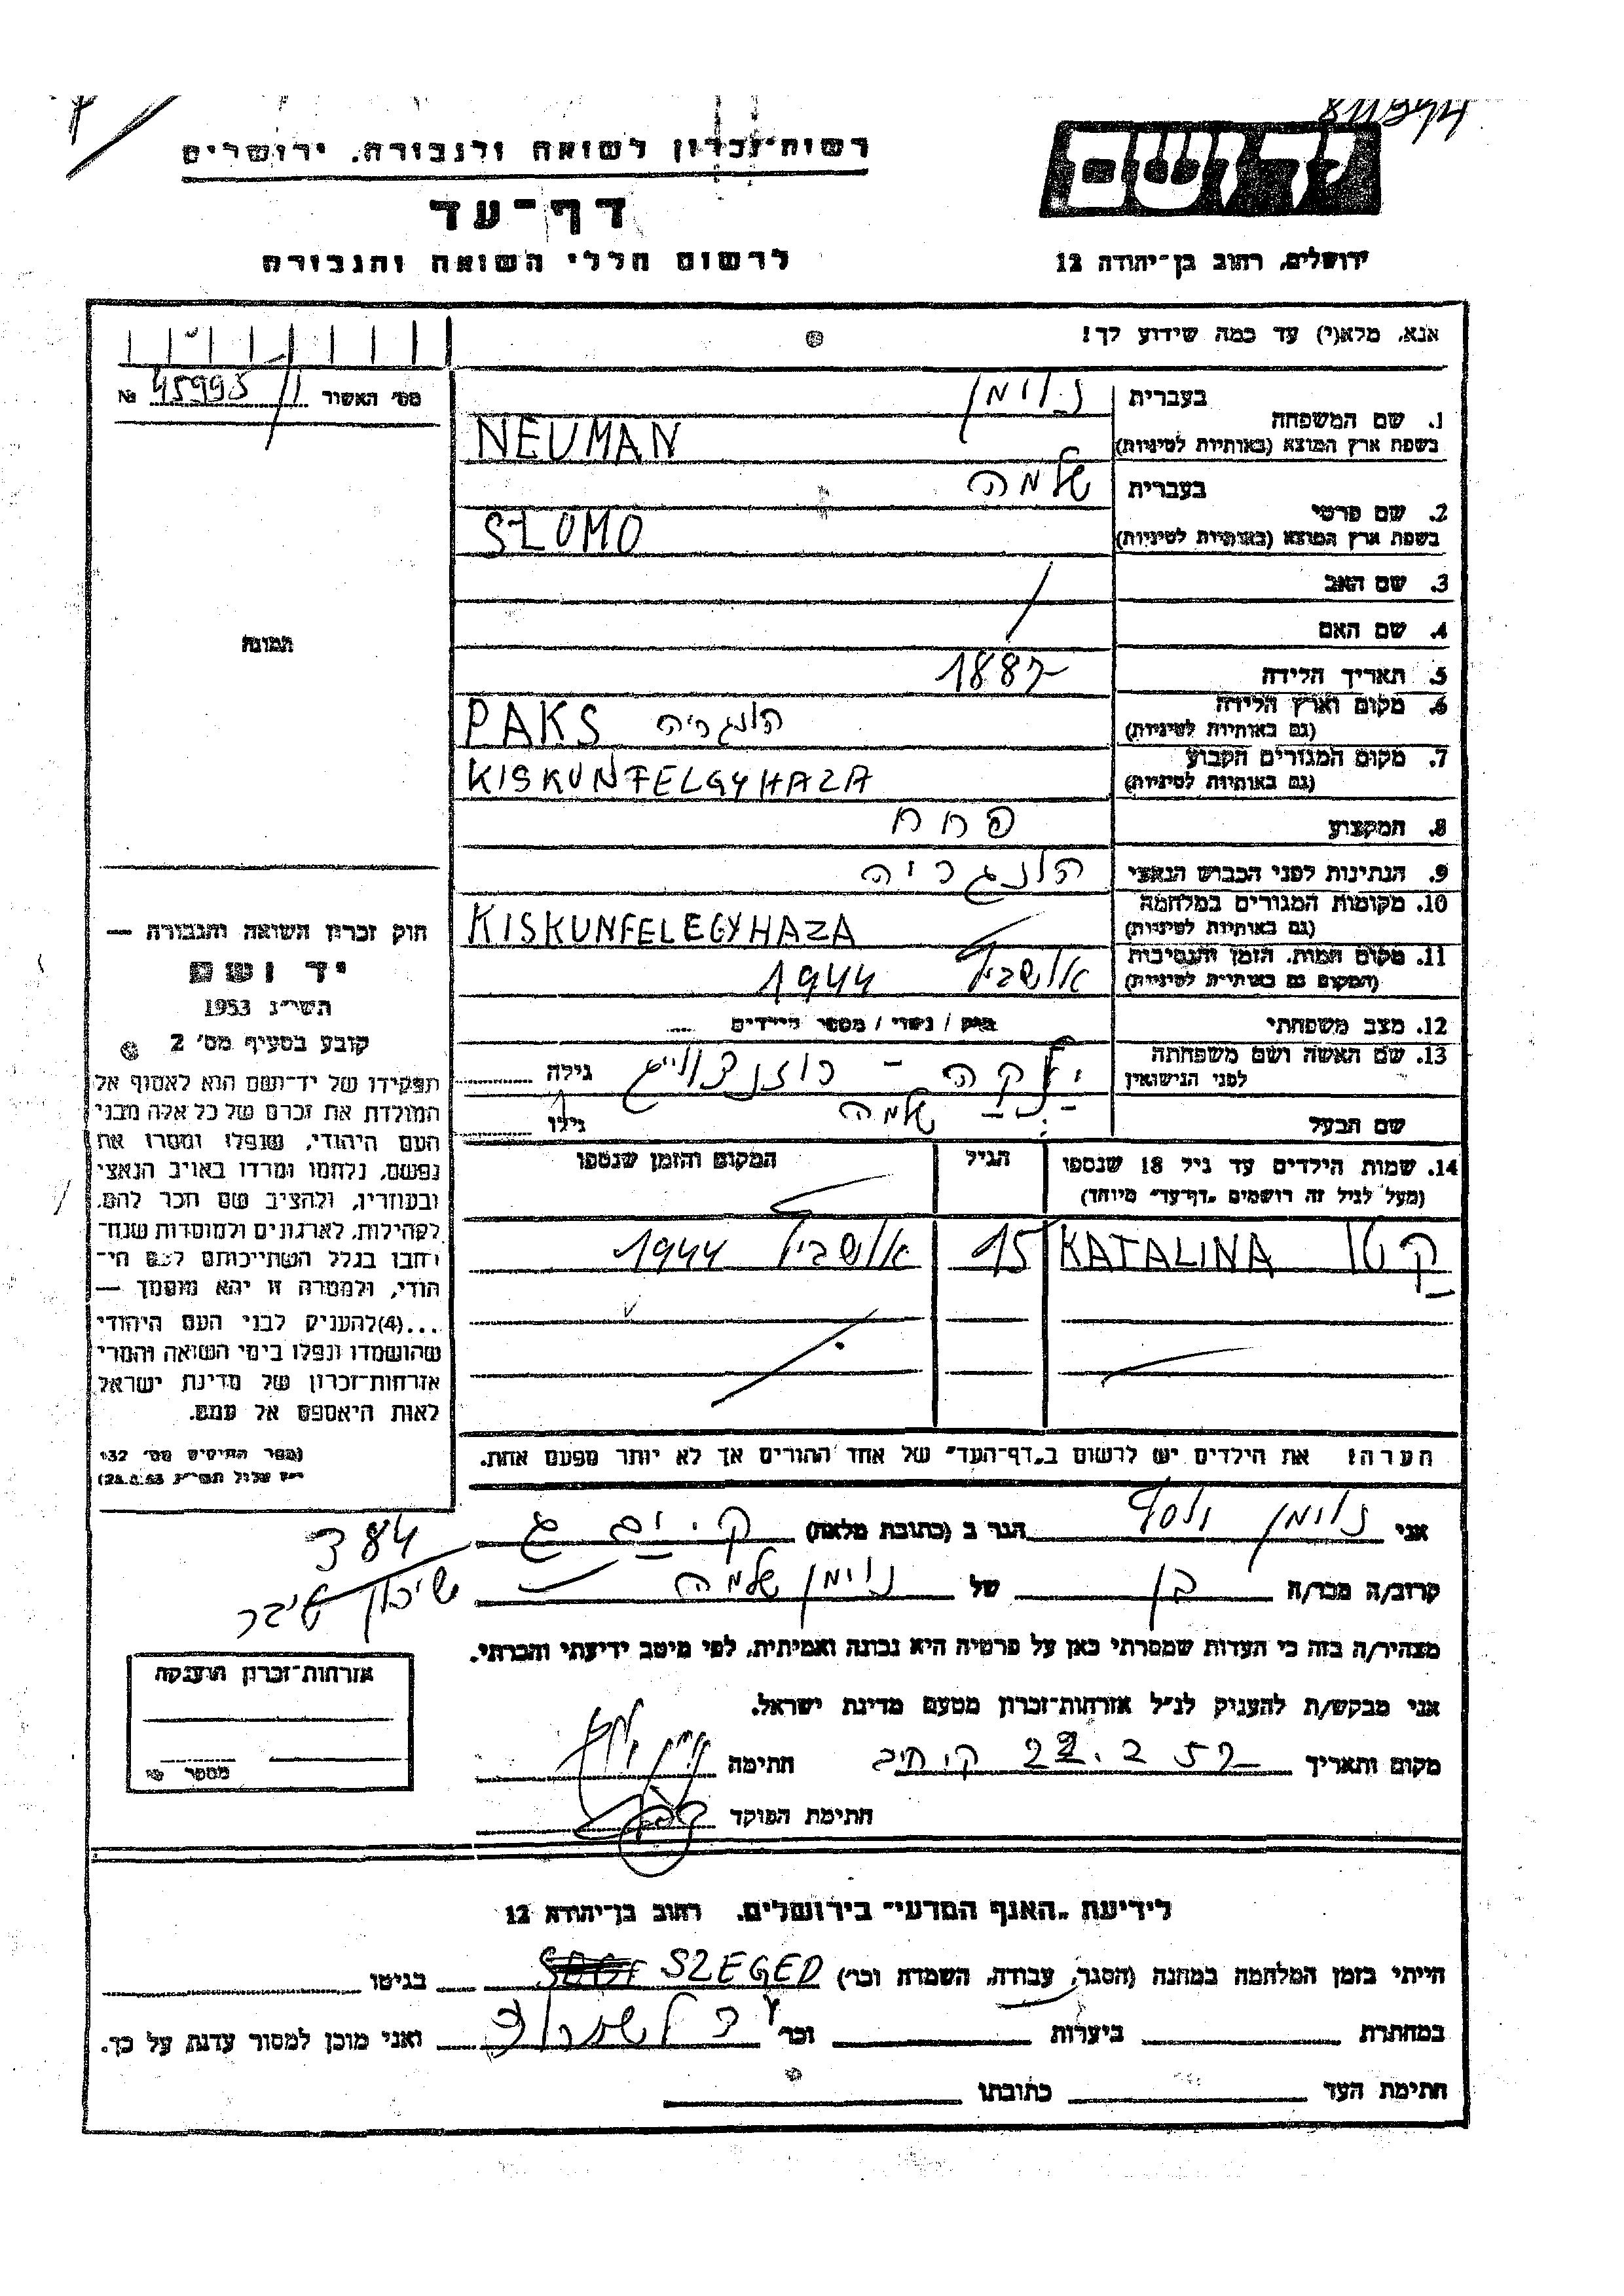 רשות־זכרון לשואה ולגבורה, ירושלים
דף־עד
לרשום חללי השואה והגבורה
יד ושם
ירושלים, רחוב בן־יהודה 12
אנא, מלא(י) עד כמה שידוע לך!
מס' האשור 45993 №
1. שם המשפחה
בעברית נוימן
בשפת ארץ המוצא (באותיות לטיניות) NEUMAN
2. שם פרטי
בעברית שלמה
בשפת ארץ המוצא (באותיות לטיניות) SZLOMO
3. שם האב
4. שם האם
5. תאריך הלידה 1887
6. מקום וארץ הלידה (גם באותיות לטיניות) PAKS הונגריה
7. מקום המגורים הקבוע (גם באותיות לטיניות) KISKUNFELGYHAZA
8. המקצוע פחח
9. הנתינות לפני הכבוש הנאצי הונגריה
10. מקומות המגורים במלחמה (גם באותיות לטיניות) KISKUNFELEGYHAZA
11. מקום המות, הזמן והנסיבות (המקום גם באותיות לטיניות) אושביץ 1944
12. מצב משפחתי רוק / נשוי / מספר הילדים
13. שם האשה ושם משפחתה לפני הנישואין רוזנצוויג גילה
שם הבעל שלמה גילו
14. שמות הילדים עד גיל 18 שנספו הגיל המקום והזמן שנספו
(מעל לגיל זה רושמים „דף־עד” מיוחד)
קטו KATALINA 15 אושביץ 1944
הערה! את הילדים יש לרשום ב„דף־העד” של אחד ההורים אך לא יותר מפעם אחת.
תמונה
חוק זכרון השואה והגבורה —
יד ושם
תשי״ג 1953
קובע בסעיף מס' 2
תפקידו של יד־ושם הוא לאסוף אל
המולדת את זכרם של כל אלה מבני
העם היהודי, שנפלו ומסרו את
נפשם, נלחמו ומרדו באויב הנאצי
ובעוזריו, ולהציב שם וזכר להם,
לקהילות, לארגונים ולמוסדות שנח־
רבו בגלל השתייכותם לעם הי־
הודי, ולמטרה זו יהא מוסמך —
...(4)להעניק לבני העם היהודי
שהושמדו ונפלו בימי השואה והמרי
אזרחות־זכרון של מדינת ישראל
לאות היאספם אל עמם.
(ספר החוקים מס' 132
י״ז אלול תשי״ג 28.8.53)
אני נוימן יוסף הגר ב (כתובת מלאה) ק. ים ג
384
שיכון
קרוב/ה מכר/ה בן של נוימן שלמה
מצהיר/ה בזה כי העדות שמסרתי כאן על פרטיה היא נכונה ואמיתית, לפי מיטב ידיעתי והכרתי.
אני מבקש/ת להעניק לנ״ל אזרחות־זכרון מטעם מדינת ישראל.
מקום ותאריך 22.2.57 חתימה
חתימת הפוקד
אזרחות־זכרון הוענקה
מספר
לידיעת „האגף המדעי” בירושלים, רחוב בן־יהודה 12
הייתי בזמן המלחמה במחנה (הסגר, עבודה, השמדה וכו') SZEGED בגיטו
במחתרת ביערות וכו' ואני מוכן למסור עדות על כך.
חתימת העד כתובתו